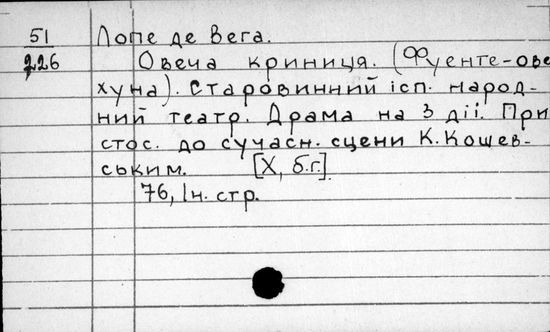 51 Лопе де Вега.
226 Овеча криниця. (Фуенте-ове
хуна). Старовинний ісп. народ-
ний театр. Драма на 3 дії. При
стос. до сучасн. сцени К. Кошев-
ським. [Х, б.г.].
76, Ін. стр.